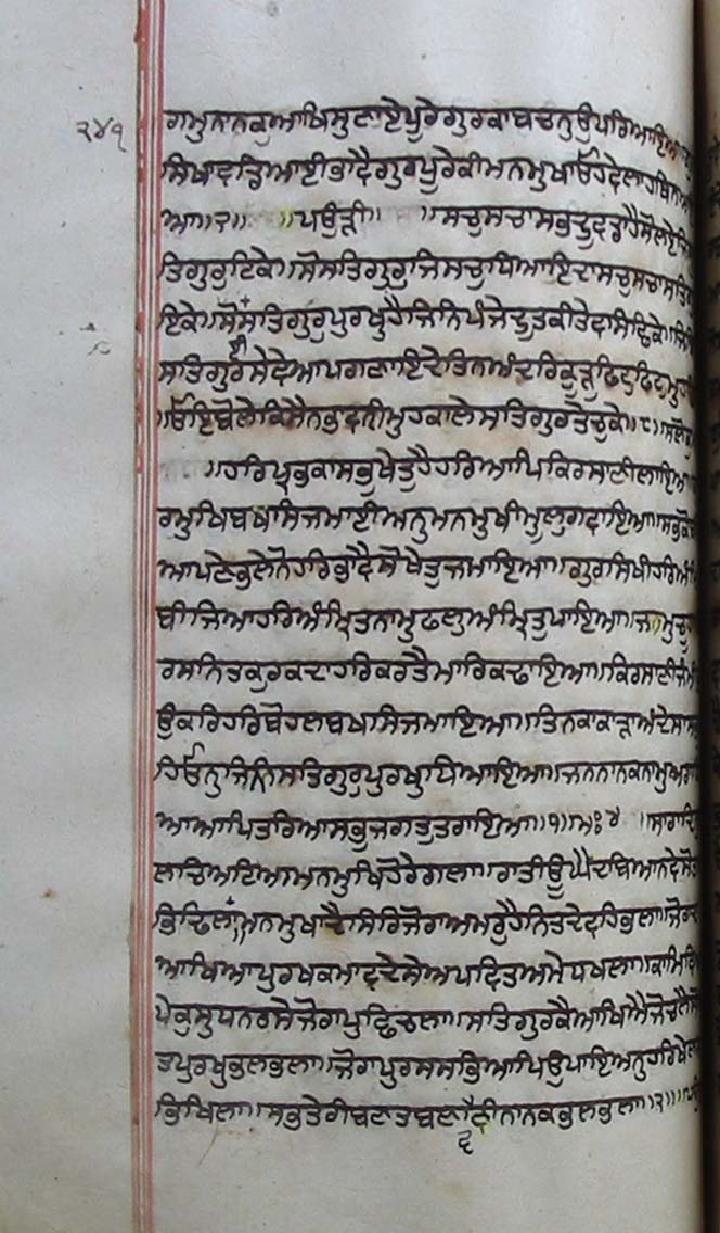 ੨੪੧
ਗਮੁਨਾਨਕੁਆਖਿਸੁਣਾਏਪੂਰੇਗੁਰਕਾਬਚਨੁਉਪਰਿਆਇਆ
ਸਿਖਾਵਡਿਆਈਭਾਵੈਗੁਰਪੂਰੇਕੀਮਨਮੁਖਾਓਹਵੇਲਾਹਥਿਨ
ਆ॥੨॥ ॥ਪਉੜੀ॥ ॥ਸਚੁਸਚਾਸਭਦੂਵਡਾਹੈਸੋਲਏਜਿ
ਤਿਗੁਰੁਟਿਕੇ॥ਸੋਸਤਿਗੁਰੁਜਿਸਚੁਧਿਆਇਦਾਸਚੁਸਚਾਸਤਿ
ਇਕੇ॥ਸੋਸਤਿਗੁਰੁਪੁਰਖੁਹੈਜਿਨਿਪੰਜੇਦੂਤਕੀਤੇਵਸਿਛਿਕੇ॥ਜਿ
ਸਤਿਗੁਰਸੇਵੇਆਪਗਣਾਇਦੇਤਿਨਅੰਦਰਿਕੂੜੁਫਿਟੁਫਿਟੁਮੁਹ
॥ਓਇਬੋਲੇਕਿਸੈਨਭਾਵਨੀਮੁਹਕਾਲੇਸਤਿਗੁਰਤੇਚੁਕੇ॥੮॥ਸਲੋਕੁ
॥ਹਰਿਪ੍ਰਭਕਾਸਭੁਖੇਤੁਹੈਹਰਿਆਪਿਕਿਰਸਾਣੀਲਾਇਆ
ਰਮੁਖਿਬਖਸਿਜਮਾਈਅਨੁਮਨਮੁਖੀਮੂਲੁਗਵਾਇਆ॥ਸਭੁਕੋ
ਆਪਣੇਭਲੇਨੋਹਰਿਭਾਵੈਸੋਖੇਤੁਜਮਾਇਆ॥ਗੁਰਸਿਖੀਹਰਿਅੰ
ਬੀਜਿਆਹਰਿਅੰਮ੍ਰਿਤਨਾਮੁਫਲੁਅੰਮ੍ਰਿਤੁਪਾਇਆ॥ਜਮੁਚੂ
ਰਸਨਿਤਕੁਰਕਦਾਹਰਿਕਰਤੈਮਾਰਿਕਢਾਇਆ॥ਕਿਰਸਾਣੀਜੰਮੀ
ਉਕਰਿਹਰਿਬੋਹਲਬਖਸਿਜਮਾਇਆ॥ਤਿਨਕਾਕਾੜਾਅੰਦੇਸਾਸ
ਹਿਓਨੁਜਿਨਿਸਤਿਗੁਰੁਪੁਰਖੁਧਿਆਇਆ॥ਜਨਨਾਨਕਨਾਮੁਅਰਾ
ਆਆਪਿਤਰਿਆਸਭੁਜਗਤੁਤਰਾਇਆ॥੧॥ਮਃ੪ ॥ਸਾਰਾਦਿ
ਲਾਚਿਅਟਿਆਮਨਮੁਖਿਹੋਰੇਗਲਾ॥ਰਾਤੀਊਘੈਦਬਿਆਨਵੇਸੋਤ
ਭਿਢਿਲਾ॥ਮਨਮੁਖਾਦੈਸਿਰਿਜੋਰਾਅਮਰੁਹੈਨਿਤਦੇਵਹਿਭਲਾ॥ਜੋਰਾਦਾ
ਆਖਿਆਪੁਰਖਕਮਾਵਦੇਸੇਅਪਵਿਤਅਮੇਧਖਲਾ॥ਕਾਮਿਵਿ
ਪੇਕੁਸੁਧਨਰਸੇਜੋਰਾਪੁਛਿਚਲਾ॥ਸਤਿਗੁਰਕੈਆਖਿਐਜੋਚਲੈਸੋ
ਤਪੁਰਖੁਭਲਭਲਾ॥ਜੋਰਾਪੁਰਸਸਭਿਆਪਿਉਪਾਇਅਨੁਹਰਿਖੇਲ
ਭਿਖਿਲਾ॥ਸਭਤੇਰੀਬਣਤਬਣਾਵਣੀਨਾਨਕਭਲਭਲਾ॥੨॥